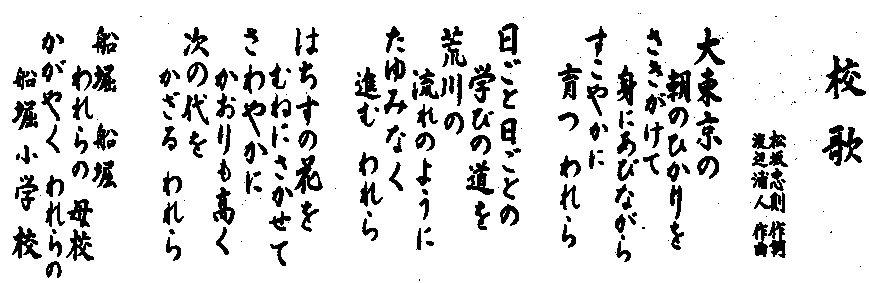 校歌
松坂忠則 作詞
渡辺浦人 作曲
大東京の
朝のひかりを
さきがけて
身にあびながら
すこやかに
育つ われら
日ごと日ごとの
学びの道を
荒川の
流れのように
たゆみなく
進む われら
はちすの花を
むねにさかせて
さわやかに
かおりも高く
次の代を
かざる われら
船堀 船堀
われらの 母校
かがやく われらの
船堀小学校